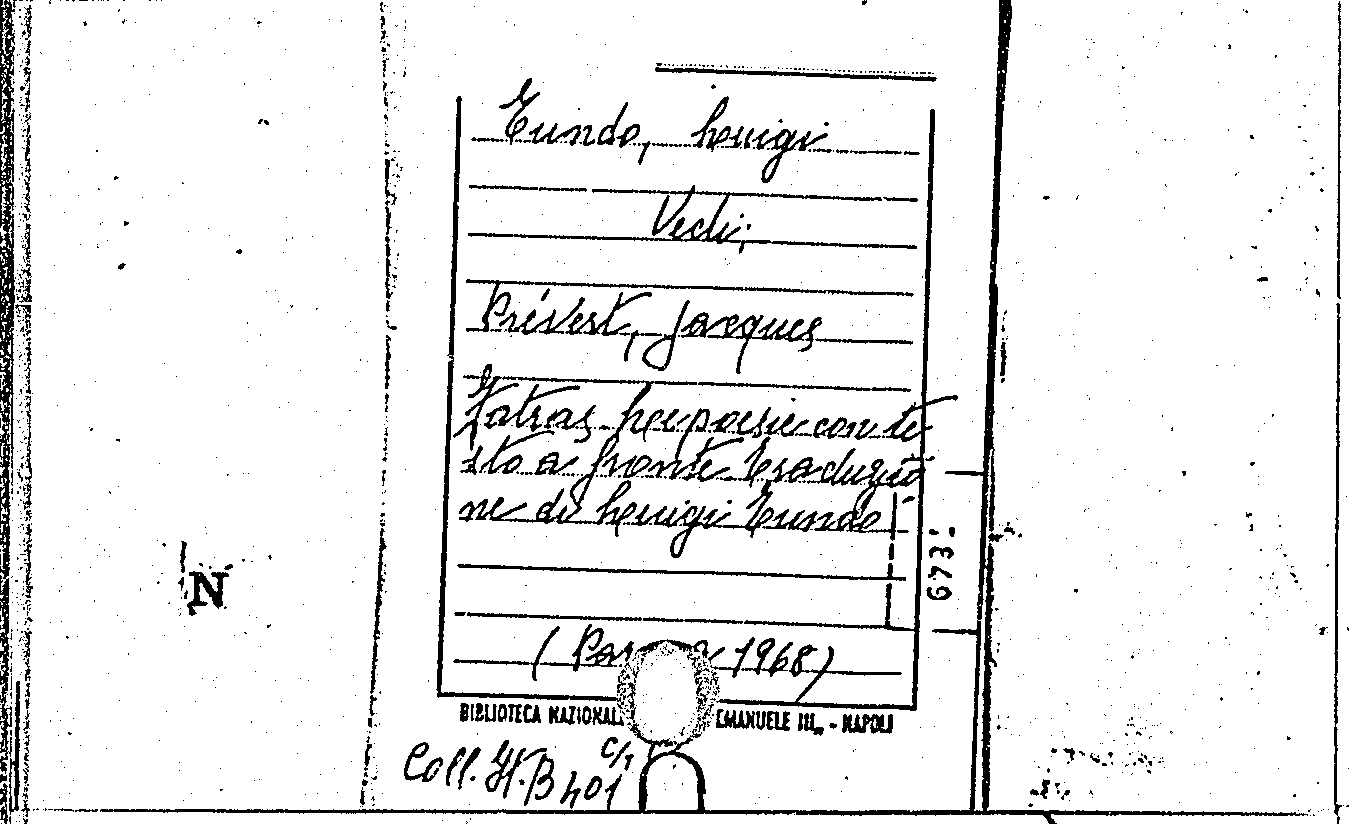 Tundo, Luigi
Vedi;
Prévert, Jacques
Fatras. Le poesie con te
sto a fronte Traduzio
ne di Luigi Tundo
673'-
( 1968)
BIBLIOTECA NAZIONAL EMANUELE III„ - NAPOLI
C/1
Coll. H.B 401
N